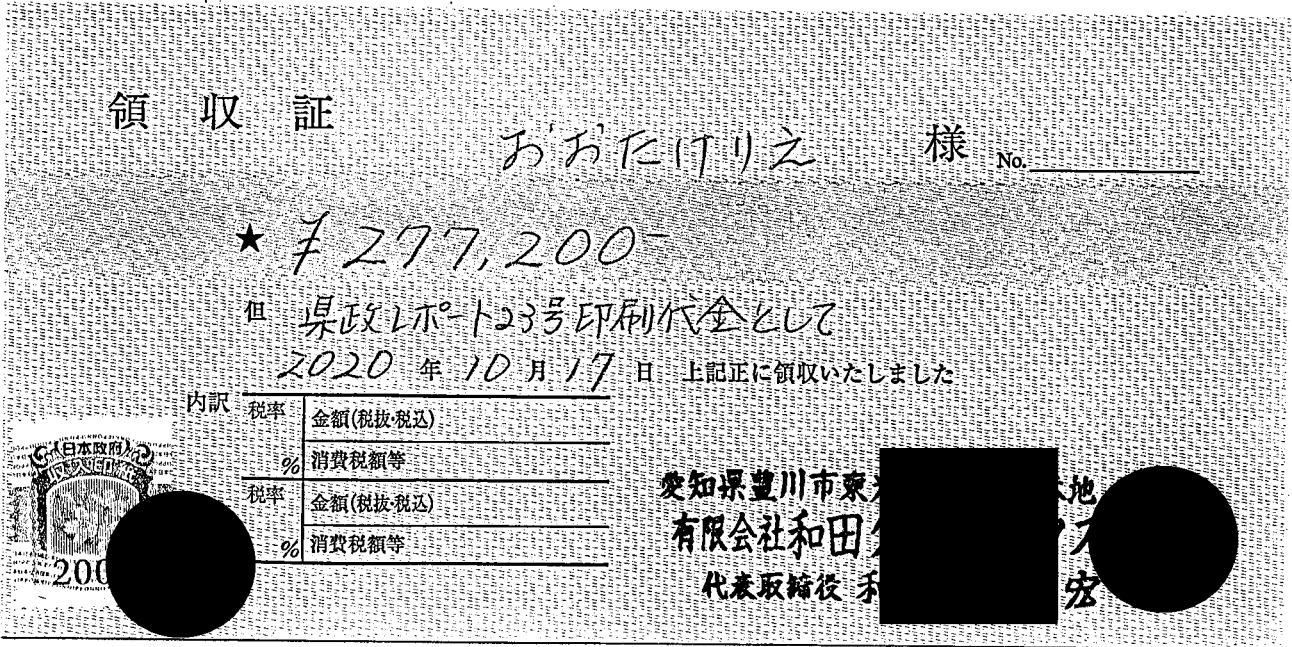 領収証
おおたけりえ 様 No.
★ ¥277,200-
但 県政レポート23号印刷代金として
2020年10月17日 上記正に領収いたしました
内訳
税率 金額(税抜・税込)
% 消費税額等
税率 金額(税抜・税込)
% 消費税額等
日本政府
200
愛知県豊川市東
地
有限会社和田
ス
代表取締役
宏